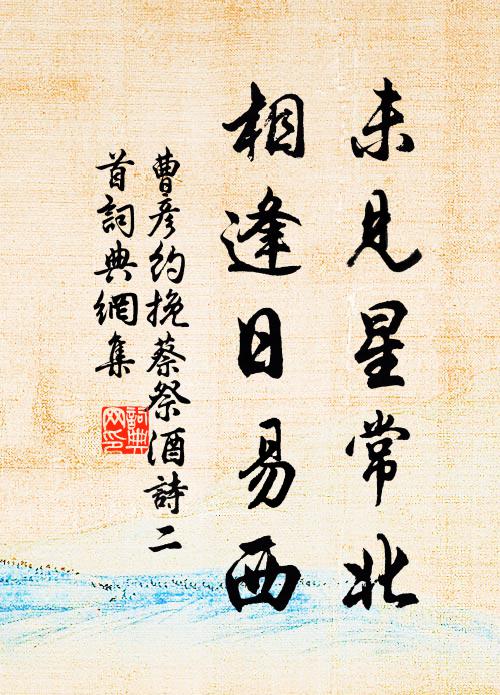 未見星常北
相逢日易西
曹彦約挽蔡祭酒詩二
首詞典網集
詞典
网印